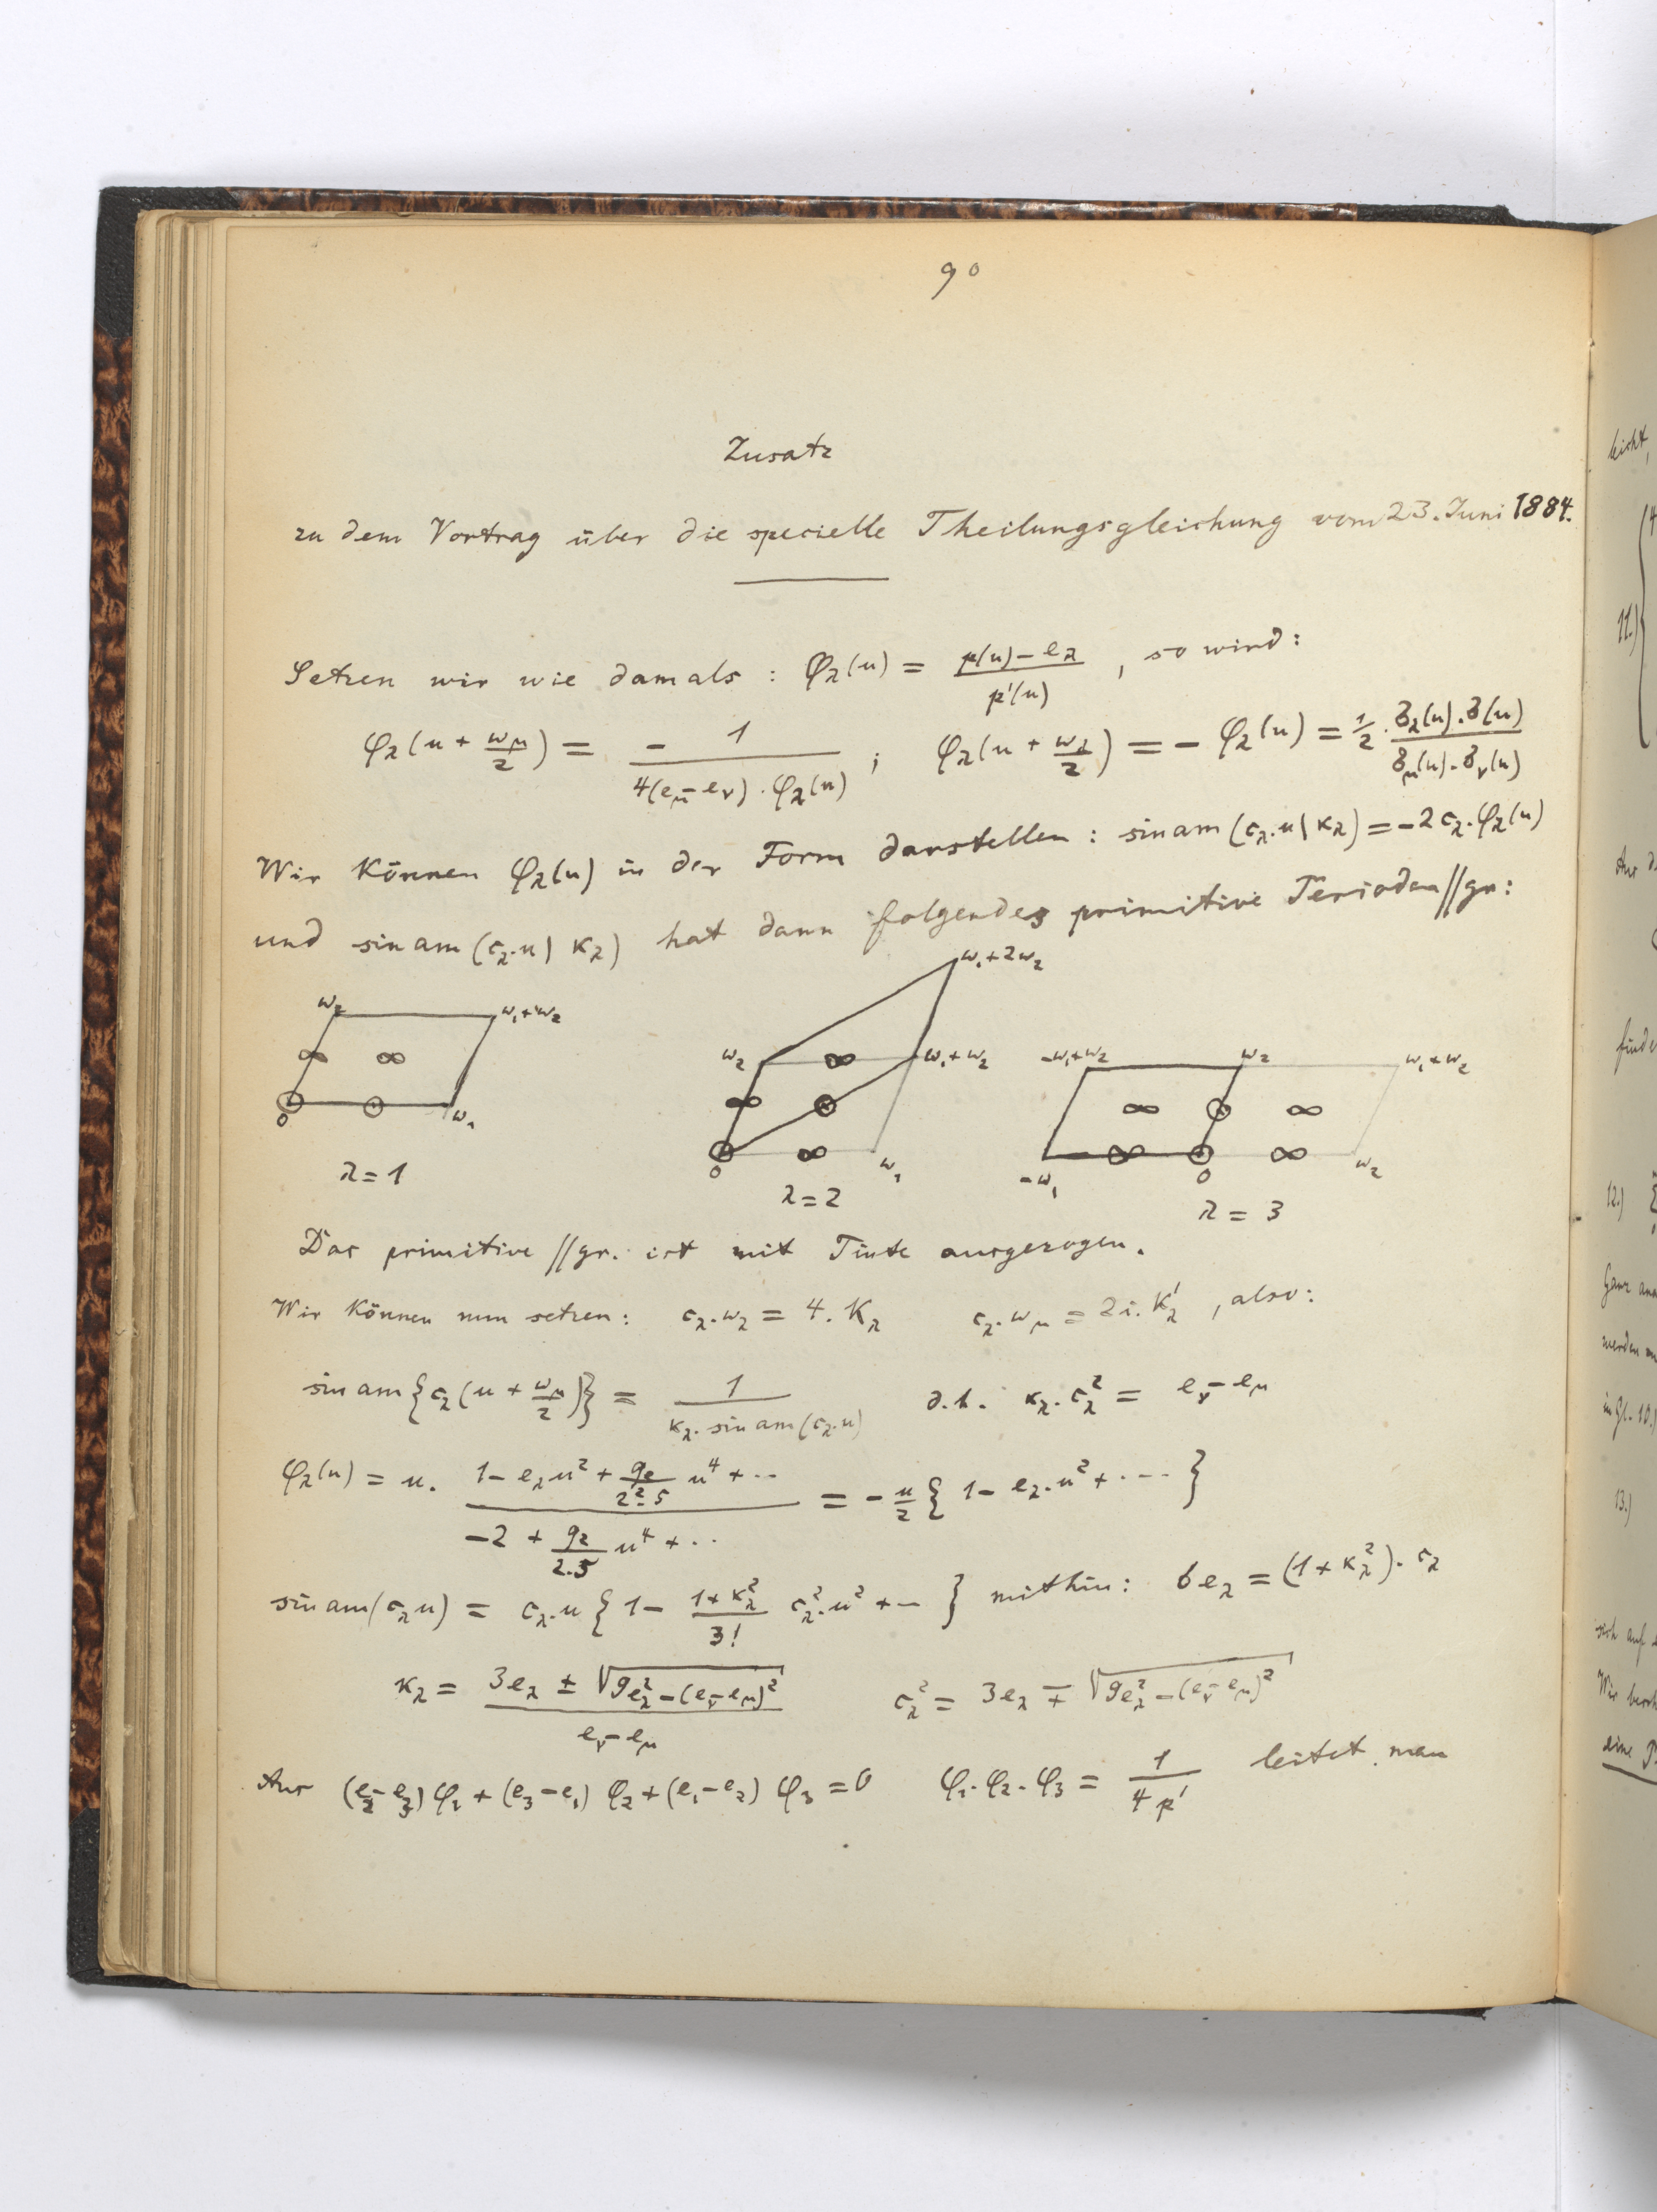 90
Zusatz
zu dem Vortrag über die specielle Theilungsgleichung vom 23. Juni 1884.
Setzen wir wie damals : φ_λ(u) = (p(u) − e_λ)/(p'(u)) , so wird:
φ_λ(u + ω_μ/2) = − 1/(4(e_μ − e_ν) . φ_λ(u)) ; φ_λ(u + ω_λ/2) = − φ_λ(u) = 1/2 . (σ_λ(u) . σ(u))/(σ_μ(u) . σ_ν(u))
Wir können φ_λ(u) in der Form darstellen : sin am (c_λ.u | κ_λ) = −2 c_λ . φ_λ(u)
und sin am (c_λ.u | κ_λ) hat dann folgendes primitive Perioden//gr:
ω₂ ω₁+ω₂
∞ ∞
0 ω₁
λ = 1
ω₁+2ω₂
ω₂ ∞ ω₁+ω₂
∞
0 ∞ ω₁
λ = 2
−ω₁+ω₂ ω₂ ω₁+ω₂
∞ ∞
−ω₁ ∞ 0 ∞ ω₂
λ = 3
Das primitive //gr. ist mit Tinte ausgezogen.
Wir können nun setzen: c_λ.ω_λ = 4. K_λ c_λ.ω_μ = 2i. K'_λ , also:
sin am {c_λ(u + ω_μ/2)} = 1/(κ_λ. sin am (c_λ.u)) d.h. κ_λ. c_λ² = e_ν − e_μ
φ_λ(u) = u. (1 − e_λu² + g₂/(2².5) u⁴ + ··)/(−2 + g₂/(2.5) u⁴ + ··) = − u/2 { 1 − e_λ.u² + ··· }
sin am (c_λu) = c_λ.u { 1 − (1+κ_λ²)/3! c_λ².u² + − } mithin: 6e_λ = (1 + κ_λ²). c_λ
κ_λ = (3e_λ ± √(9e_λ² − (e_ν − e_μ)²))/(e_ν − e_μ) c_λ² = 3e_λ ∓ √(9e_λ² − (e_ν − e_μ)²)
Aus (e₂ − e₃) φ₁ + (e₃ − e₁) φ₂ + (e₁ − e₂) φ₃ = 0 φ₁. φ₂. φ₃ = 1/(4 p') leitet man
leicht,
11.)
12.)
13.)